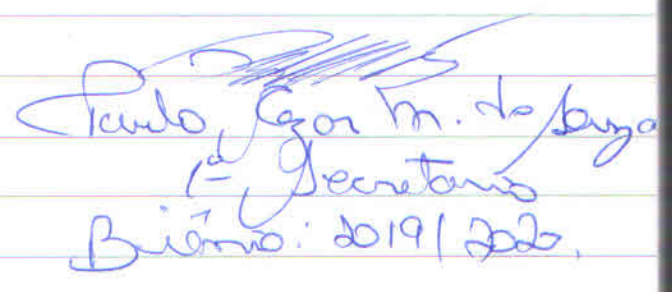 Paulo Cezar M. de Souza
1º Secretario
Biênio: 2019/2020.